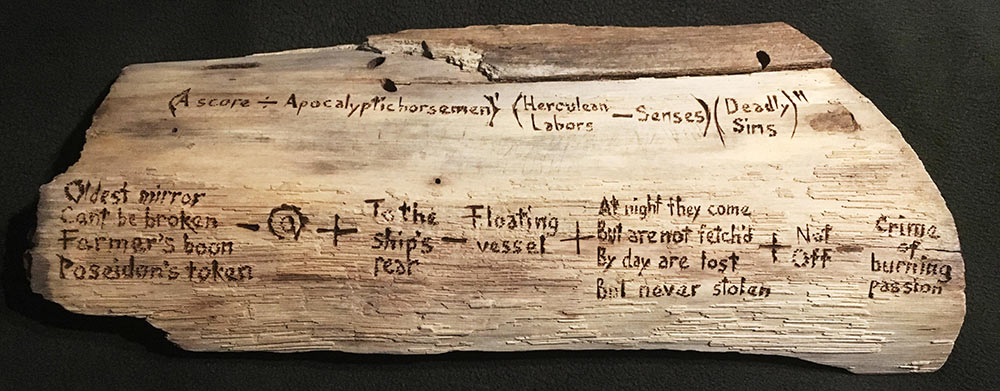 (A score ÷ Apocalyptichorsemen)' (Herculean
Labors − Senses)(Deadly
Sins)"
Oldest mirror
Cant be broken
Farmer's boon
Poseidon's token
− @ +
To the
ship's
rear
−
Floating
vessel
+
At night they come
But are not fetch'd
By day are lost
But never stolen
+
Not
Off
−
Crime
of
burning
passion